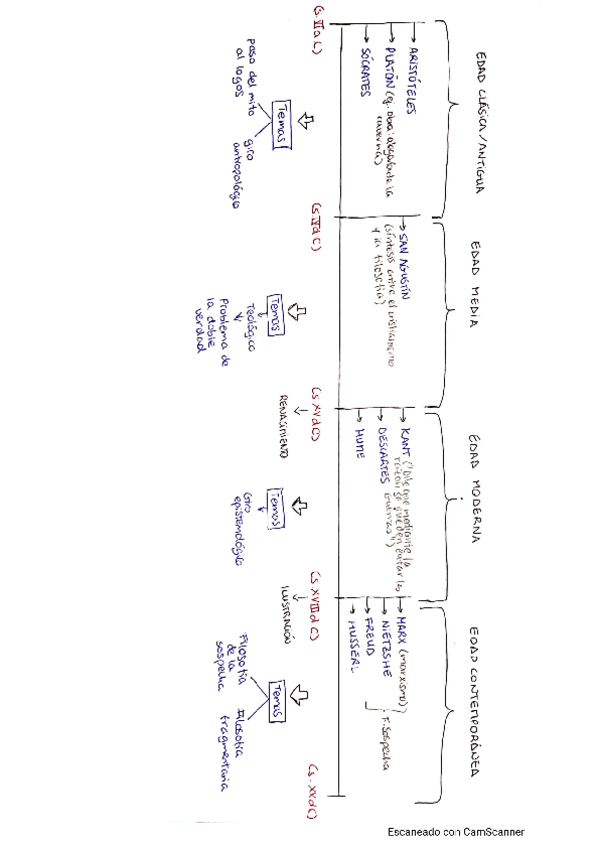 EDAD CLÁSICA/ANTIGUA
(s. VI a C)
ARISTÓTELES
PLATÓN (ej. obra: alegato de la
caverna)
SÓCRATES
Temas
paso del mito
al logos
giro
antropológico
EDAD MEDIA
(s. IV d C)
SAN AGUSTÍN
(síntesis entre el cristianismo
y la filosofía)
Temas
Teológico
Problema de
la doble
verdad
EDAD MODERNA
(s. XV d C)
RENACIMIENTO
KANT ("Dile que mediante la
razón se pueden evitar las
")
DESCARTES
HUME
Temas
Giro
epistemológico
EDAD CONTEMPORÁNEA
(s. XVIII d C)
ILUSTRACIÓN
MARX (marxismo)
NIETZSHE
FREUD
HUSSERL
F. Sospecha
Temas
Filosofía
de la
sospecha
Filosofía
fragmentaria
(s. XX d C)
Escaneado con CamScanner